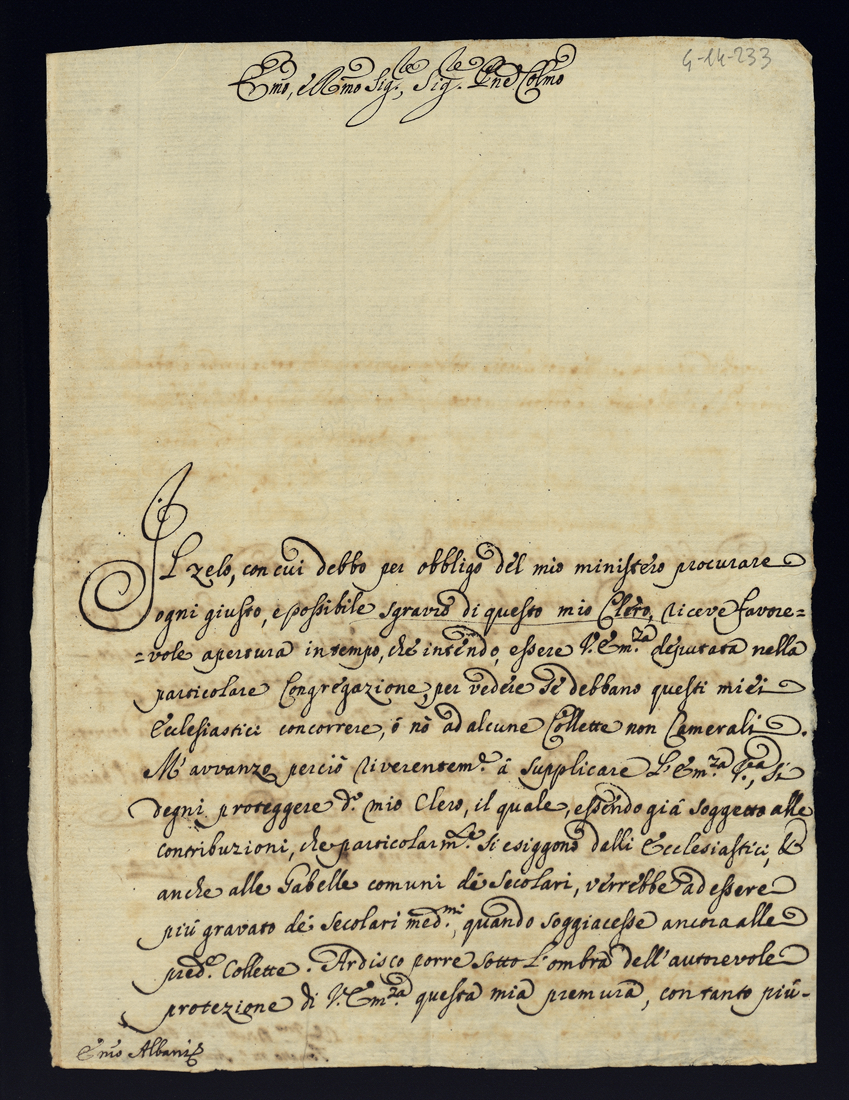 4-14-233
Emo, e Rmo Sig.re, Sig.re Pne Colmo
Il zelo, con cui debbo per obbligo del mio ministero procurare
ogni giusto, e possibile sgravio di questo mio Clero, riceve favore=
=vole apertura in tempo, che intendo, essere V. Em.za deputata nella
particolare Congregazione, per vedere se debbano questi miei
Ecclesiastici concorrere, ó nò ad alcune Collette non Camerali.
M'avvanzo perciò riverentem.e á supplicare L'Em.za V.ra, si
degni proteggere d.o mio Clero, il quale, essendo giá soggetto alle
contribuzioni, che particolarm.te si esiggono dalli Ecclesiastici, &
anche alle Gabelle comuni dé Secolari, verrebbe ad essere
piú gravato dé Secolari med.mi, quando soggiacesse ancora alle
pred.e Collette. Ardisco porre sotto L'ombra dell'autorevole
protezione di V. Em.za questa mia premura, con tanto piú-
Emo Albani